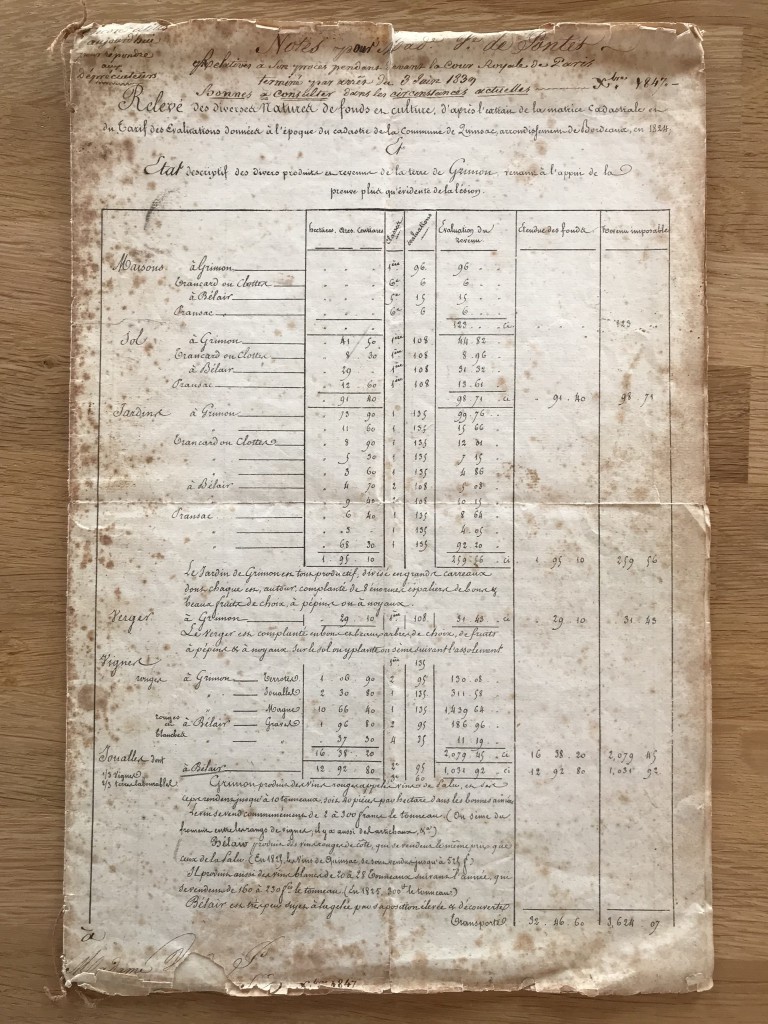 aujourd'hui
répondre
aux
Dépréciateurs
Notes pour Mad.e V.e de Pontet
Relatives à son procès pendant devant la Cour Royale de Paris
terminé par arrêt du 8 Juin 1839
Bonnes à Consulter dans les circonstances actuelles X.bre 1847.
Relevé des diverses Natures de fonds en culture, d'après l'extrait de la matrice Cadastrale et
du Tarif des Evaluations données à l'époque du cadastre de la Commune de Quinsac, arrondissement de Bordeaux, en 1824.
Et
Etat descriptif des divers produits et revenus de la terre de Grimon, venant à l'appui de la
preuve plus qu'évidente de la lésion.
hectares, ares, Centiares Classes évaluations Evaluation du revenu Etendue des fonds Revenu imposable
Maisons à Grimon " " " 1ère 96 96 " "
Trancard ou Clottes " " " 6e 6 6 " "
à Bélair " " " 5e 15 15 " "
Pransac " " " 6e 6 6 " "
" " " 123 " " ci " " " 123 "
Sol à Grimon " 41 50 1ère 108 44 82
Trancard ou Clottes " 8 30 1ère 108 8 96
à Bélair " 29 " 1ère 108 31 32
Pransac " 12 60 1ère 108 13 61
" 91 40 98 71 ci " 91 40 98 71
Jardins à Grimon " 73 90 1 135 99 76
" " 11 60 1 135 15 66
Trancard ou Clottes " 8 90 1 135 12 01
" " 5 30 1 135 7 15
" " 3 60 1 135 4 86
à Bélair " 4 70 2 108 5 08
" " 9 40 2 108 10 15
Pransac " 6 40 1 135 8 64
" " 3 " 1 135 4 05
" " 68 30 1 135 92 20
1 95 10 259 56 ci 1 95 10 259 56
Le Jardin de Grimon est tout productif, divisé en grands carreaux
dont chaque est, autour, complanté de 8 énormes espaliers de bons &
beaux fruits de choix, à pépins ou à noyaux.
Verger à Grimon " 29 10 1ère 108 31 43 ci " 29 10 31 43
Le Verger est complanté en bons et beaux arbres de choix, de fruits
à pépins & à noyaux. sur le sol on y plante on sème suivant l'assolement
Vignes 1ère 135
rouges à Grimon Terrotes 1 06 90 2 95 130 08
Joualles 2 30 80 1 135 311 58
Maque 10 66 40 1 135 1,439 64
rouges et blanches à Bélair Graves 1 96 80 2 95 186 96
" 37 30 4 35 11 19
16 38 20 2,079 45 ci 16 38 20 2,079 45
Joualles dont
1/3 vignes 2/3 terres labourables à Bélair 12 92 80 2e 95 3e 60 1,031 92 ci 12 92 80 1,031 92
Grimon produit des vins rouges appelés vins de Palu, en
rendent jusqu'à 10 tonneaux, soit par hectare dans les bonnes années.
Le vin se vend communément de 2 à 300 francs le tonneau (On sème du
froment entre les rangs de vignes, il y a aussi des artichaux, &a)
Bélair produit des vins rouges de côte, qui se vendent le même prix que
ceux de la Palu. (En 1825, les vins de Quinsac se sont vendus jusqu'à 525 f.)
Il produit aussi des vins blancs de 20 à 28 Tonneaux suivant l'année, qui
se vendent de 160 à 230 fcs le tonneau (En 1825, 300 f le tonneau)
Bélair est très peu sujet à la gelée par sa position élevée & découverte
Transporté 32 46 60 3,624 07
à
Madame
1847